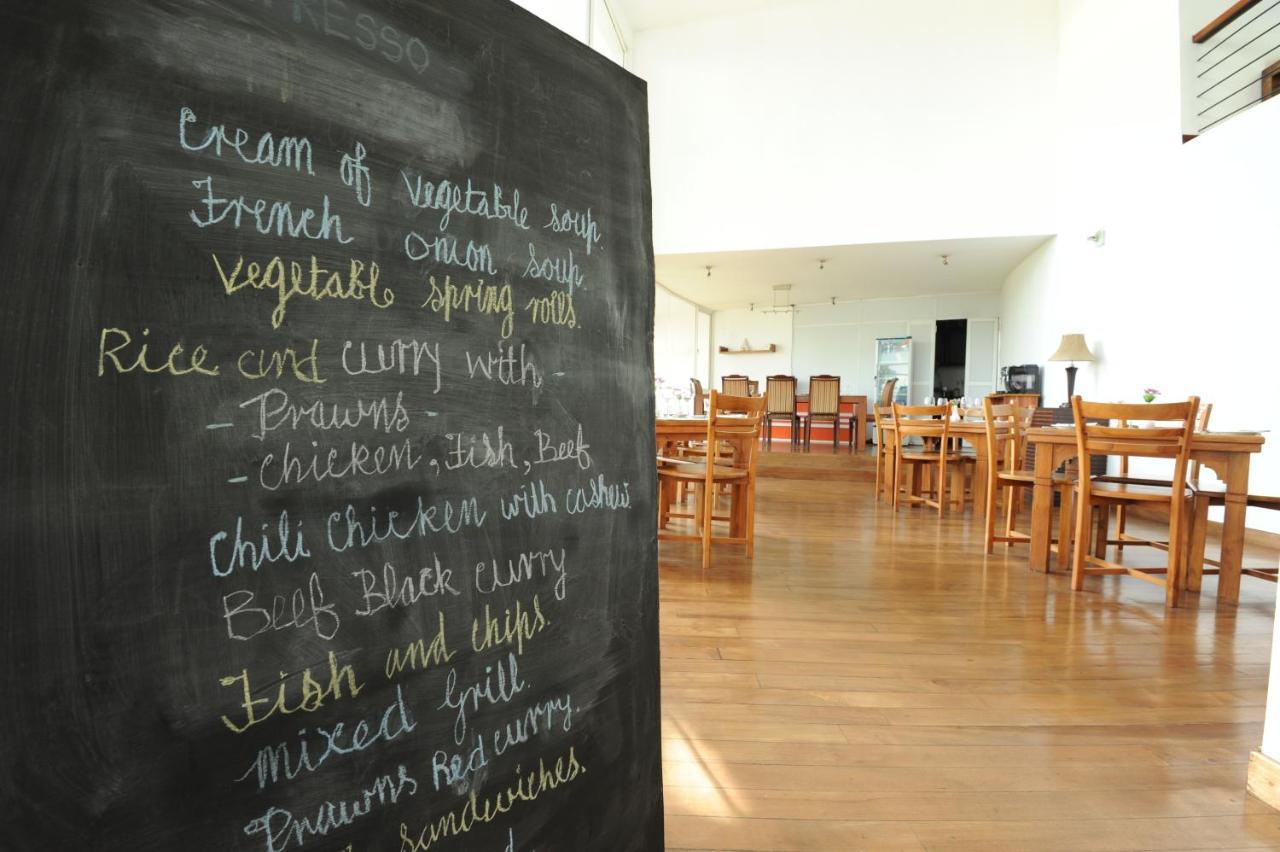 Cream of vegetable soup.
French onion soup.
Vegetable spring rolls.
Rice and curry with -
- Prawns -
- Chicken, Fish, Beef
Chili Chicken with cashew.
Beef Black curry
Fish and chips.
Mixed Grill.
Prawns Red curry.
sandwiches.